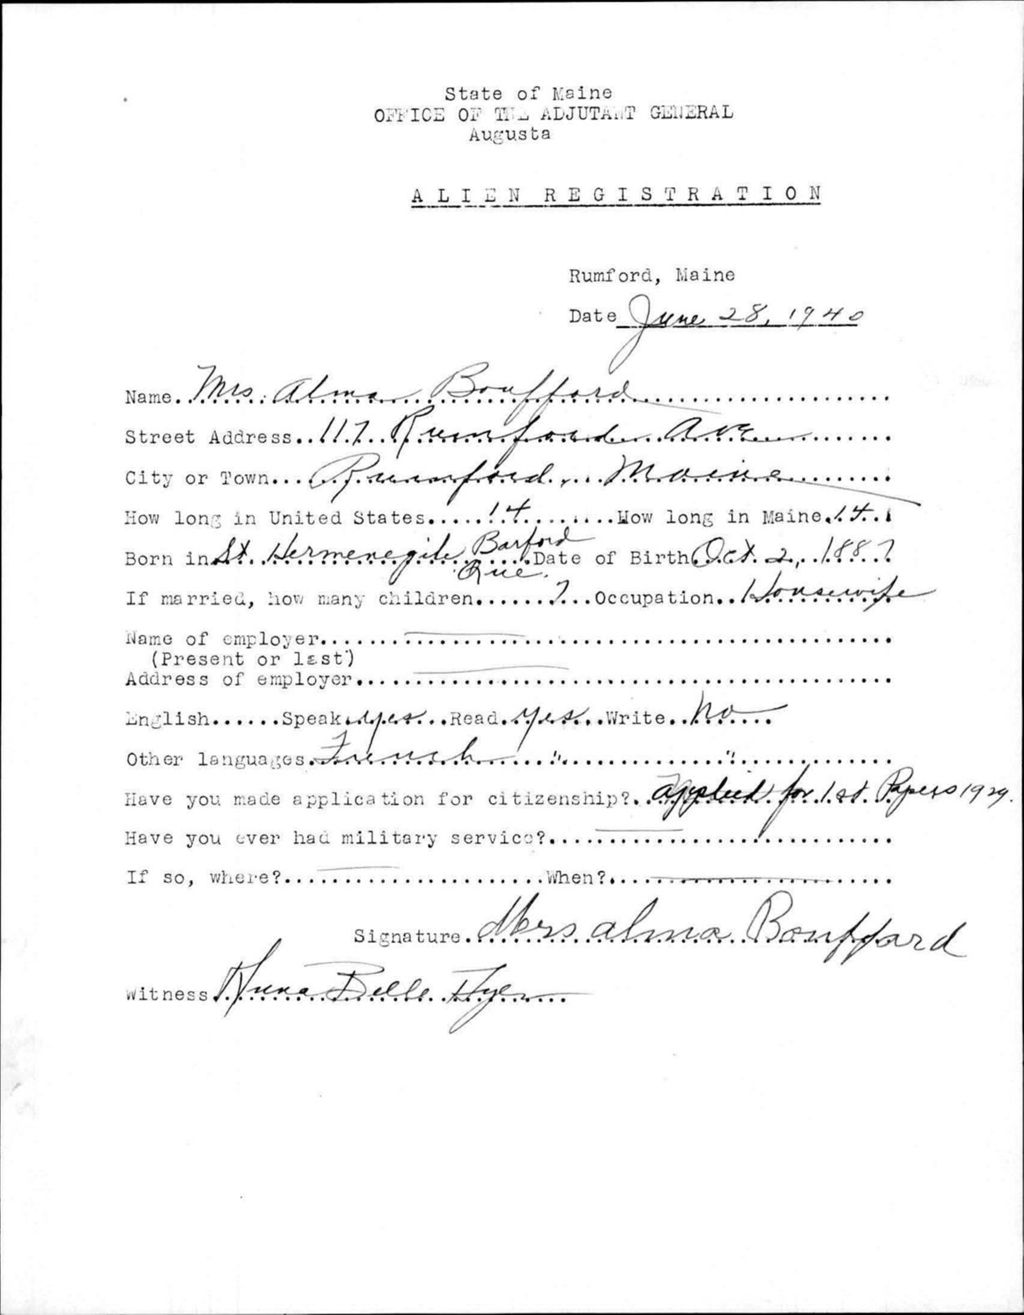 State of Maine
OFFICE OF THE ADJUTANT GENERAL
Augusta
ALIEN REGISTRATION
Rumford, Maine
Date June 28, 1940
Name. Mrs. Alma Bouffard
Street Address.. 117 Rumford Ave
City or Town... Rumford, Maine
How long in United States..... 14 ..... How long in Maine. 14
Born in St. Hermenegile, Barford Que. Date of Birth Oct. 2, 1887
If married, how many children...... 7 ...Occupation.. Housewife
Name of employer
(Present or last)
Address of employer
English......Speak. yes ..Read. yes ..Write.. no
Other languages. French " "
Have you made application for citizenship?. applied for 1st. Papers 1929.
Have you ever had military service?
If so, where? When?
Signature. Mrs Alma Bouffard
Witness Anna Belle Hyer